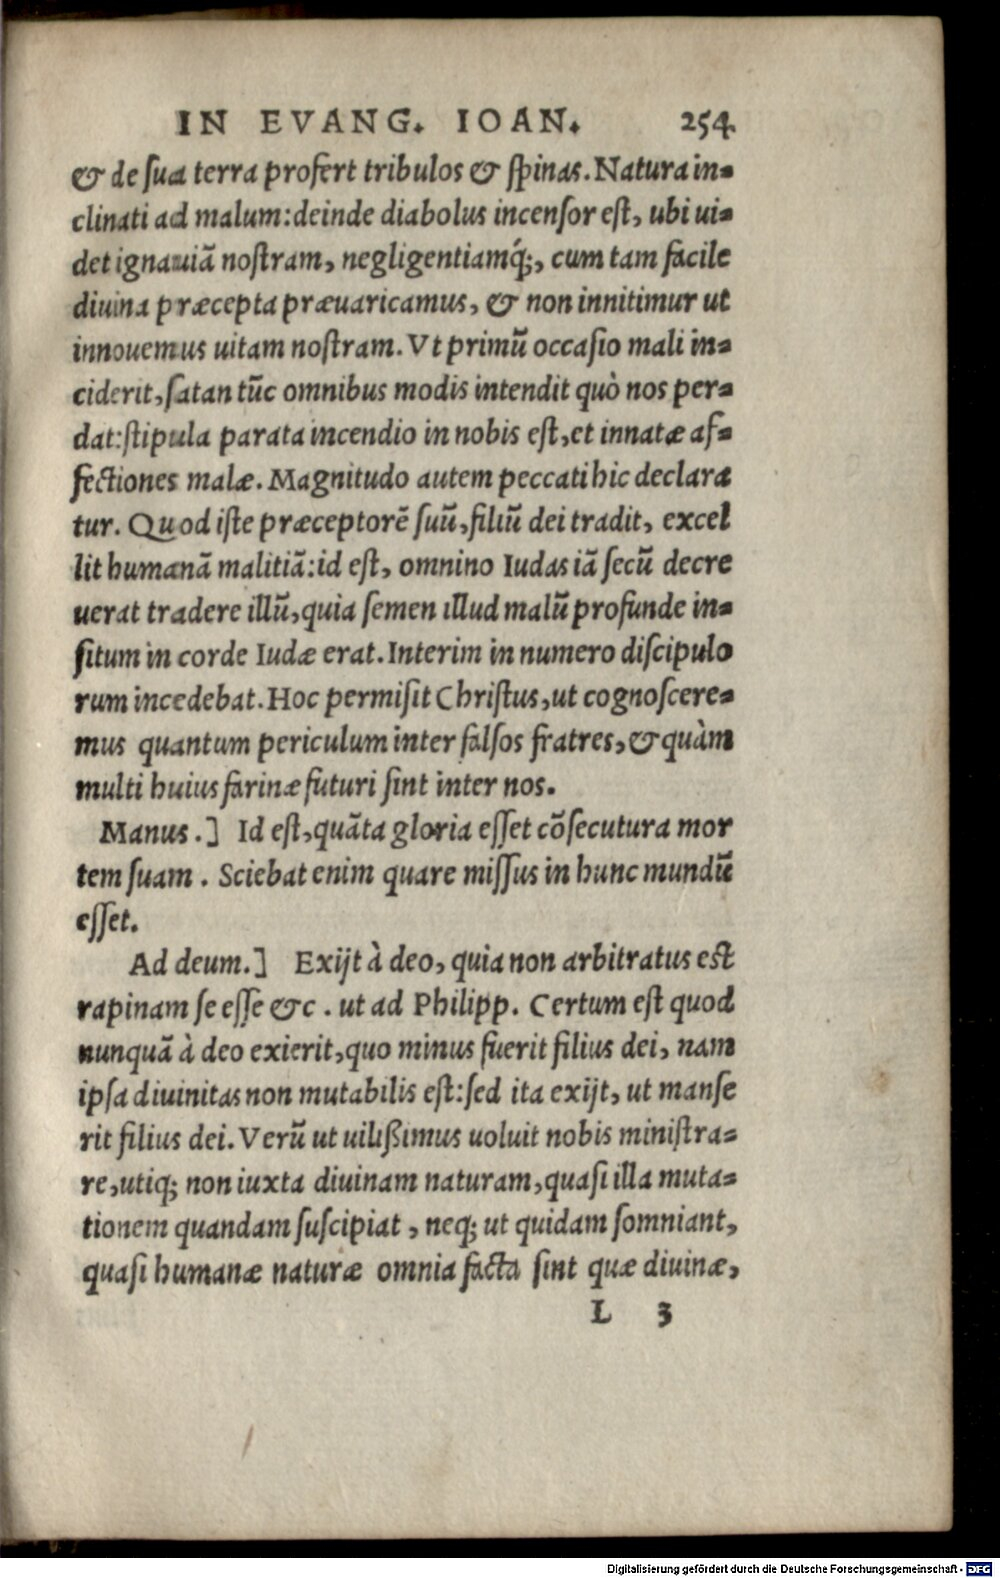 IN EVANG. IOAN. 254
& de sua terra profert tribulos & spinas. Natura in-
clinati ad malum: deinde diabolus incensor est, ubi ui-
det ignauiā nostram, negligentiamq́;, cum tam facile
diuina præcepta præuaricamus, & non innitimur ut
innouemus uitam nostram. Vt primū occasio mali in-
ciderit, satan tūc omnibus modis intendit quò nos per-
dat: stipula parata incendio in nobis est, et innatæ af-
fectiones malæ. Magnitudo autem peccati hic declara
tur. Quod iste præceptorē suū, filiū dei tradit, excel
lit humanā malitiā: id est, omnino Iudas iā secū decre
uerat tradere illū, quia semen illud malū profunde in-
situm in corde Iudæ erat. Interim in numero discipulo
rum incedebat. Hoc permisit Christus, ut cognoscere-
mus quantum periculum inter falsos fratres, & quàm
multi huius farinæ futuri sint inter nos.
Manus.] Id est, quāta gloria esset cōsecutura mor
tem suam. Sciebat enim quare missus in hunc mundū
esset.
Ad deum.] Exijt à deo, quia non arbitratus est
rapinam se esse &c. ut ad Philipp. Certum est quod
nunquā à deo exierit, quo minus fuerit filius dei, nam
ipsa diuinitas non mutabilis est: sed ita exijt, ut manse
rit filius dei. Verū ut uilißimus uoluit nobis ministra-
re, utiq; non iuxta diuinam naturam, quasi illa muta-
tionem quandam suscipiat, neq; ut quidam somniant,
quasi humanæ naturæ omnia facta sint quæ diuinæ,
L 3
Digitalisierung gefördert durch die Deutsche Forschungsgemeinschaft - DFG